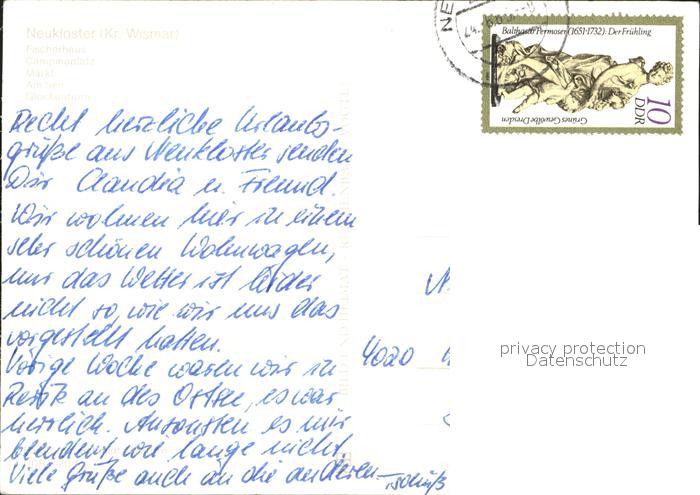 Neukloster (Kr. Wismar)
Fischerhaus
Campingplatz
Markt
Am See
Glockenturm
Recht herzliche Urlaubs-
grüße aus Neukloster senden
Dir Claudia u. Freund.
Wir wohnen hier in einem
sehr schönen Wohnwagen,
nur das Wetter ist leider
nicht so, wie wir uns das
vorgestellt hatten.
Vorige Woche waren wir in
Rerik an des Ostsee, es war
herrlich. Ansonsten es mir
blendent, wie lange nicht.
Viele Grüße auch an die anderen
Tschüß
Balthasar Permoser (1651-1732): Der Frühling
10
DDR
Grünes Gewölbe Dresden
4020
privacy protection
Datenschutz